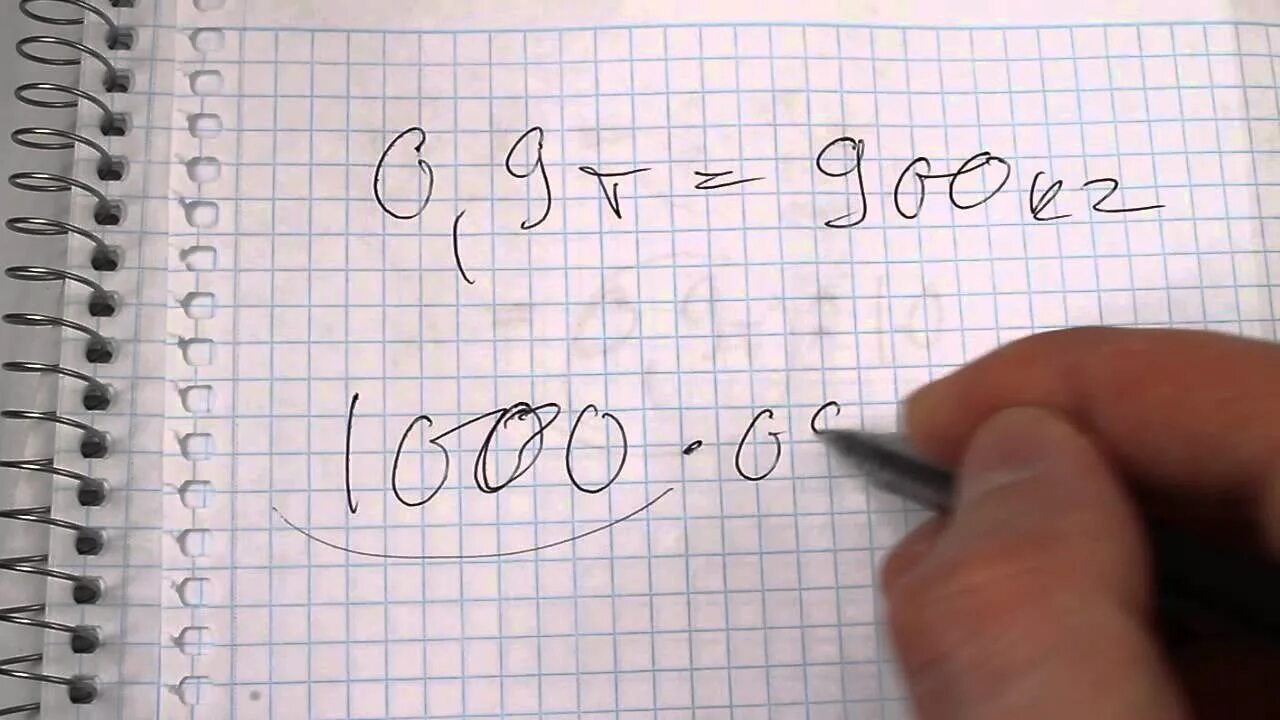 0,9т = 900кг
1000 · 09